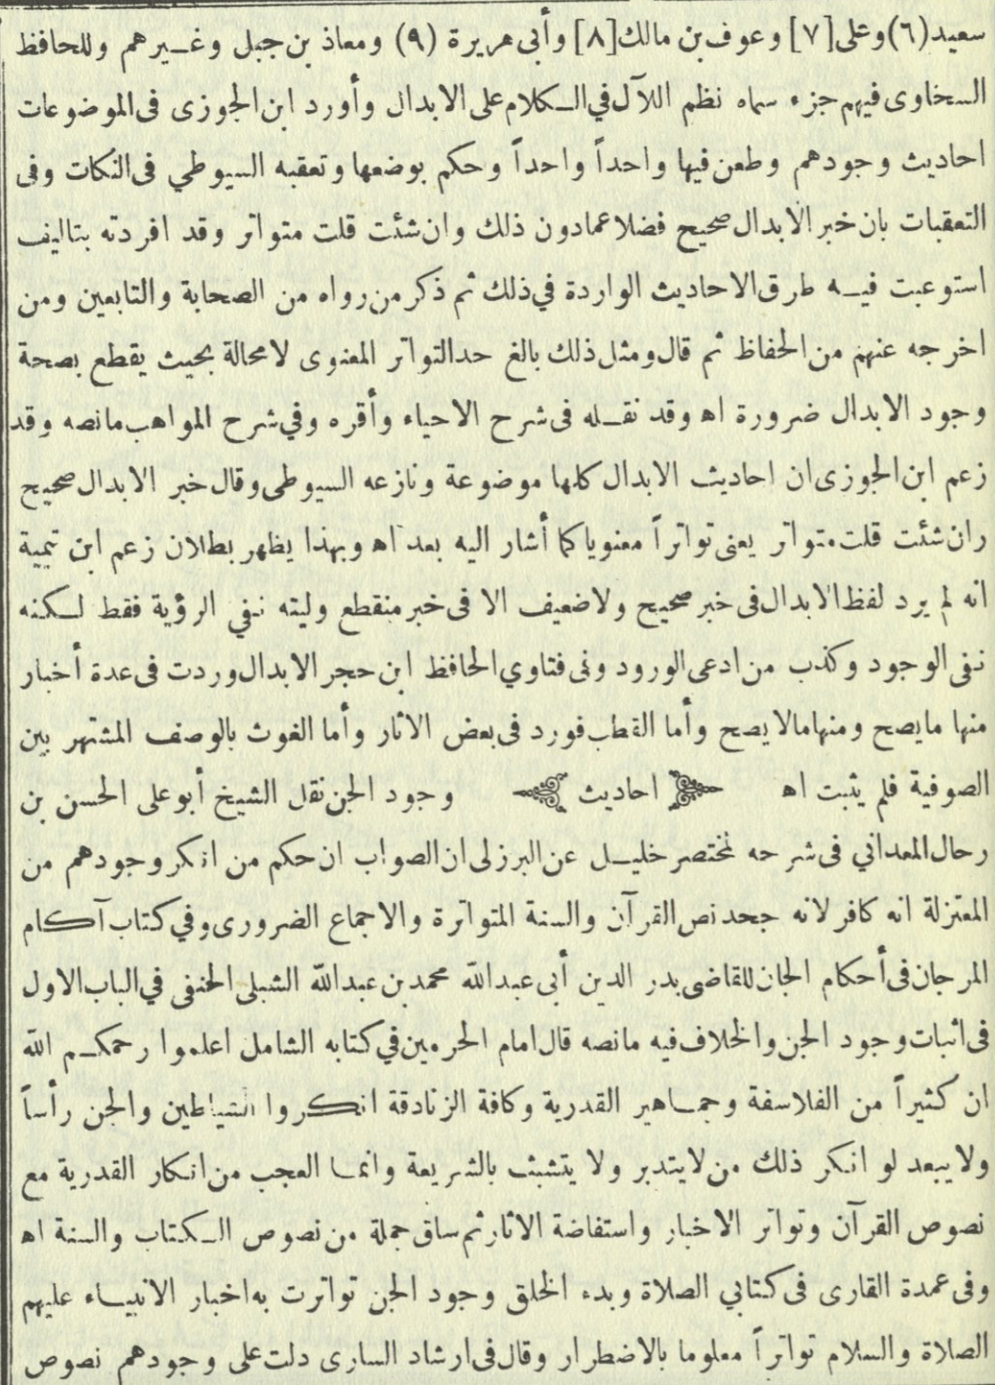 سعيد(٦)وعلى[٧] وعوف بن مالك[٨] وأبى هريرة (٩) ومعاذ بن جبل وغيرهم وللحافظ
السخاوى فيهم جزء سماه نظم اللآل في الكلام على الابدال وأورد ابن الجوزى فى الموضوعات
احاديث وجودهم وطعن فيها واحداً واحداً وحكم بوضعها وتعقبه السيوطي فى النكات وفى
التعقبات بان خبر الابدال صحيح فضلا عمادون ذلك وان شئت قلت متواتر وقد افردته بتاليف
استوعبت فيه طرق الاحاديث الواردة في ذلك ثم ذكر من رواه من الصحابة والتابعين ومن
اخرجه عنهم من الحفاظ ثم قال ومثل ذلك بالغ حد التواتر المعنوى لا محالة بحيث يقطع بصحة
وجود الابدال ضرورة اه وقد نقله فى شرح الاحياء وأقره وفي شرح المواهب مانصه وقد
زعم ابن الجوزى ان احاديث الابدال كلها موضوعة ونازعه السيوطى وقال خبر الابدال صحيح
وان شئت قلت متواتر يعنى تواتراً معنويا كما أشار اليه بعد اه وبهذا يظهر بطلان زعم ابن تيمية
انه لم يرد لفظ الابدال فى خبر صحيح ولا ضعيف الا فى خبر منقطع وليته نفي الرؤية فقط لكنه
نفى الوجود وكذب من ادعى الورود وفى فتاوي الحافظ ابن حجر الابدال وردت فى عدة أخبار
منها مايصح ومنها مالا يصح وأما القطب فورد فى بعض الاثار وأما الغوث بالوصف المشتهر بين
الصوفية فلم يثبت اه احاديث وجود الجن نقل الشيخ أبو على الحسن بن
رحال المعداني فى شرحه لمختصر خليل عن البرزلى ان الصواب ان حكم من انكر وجودهم من
المعتزلة انه كافر لانه جحد نص القرآن والسنة المتواترة والاجماع الضرورى وفي كتاب آكام
المرجان فى أحكام الجان للقاضى بدر الدين أبى عبدالله محمد بن عبدالله الشبلى الحنفى في الباب الاول
فى اثبات وجود الجن والخلاف فيه مانصه قال امام الحرمين في كتابه الشامل اعلموا رحمكم الله
ان كثيراً من الفلاسفة وجماهير القدرية وكافة الزنادقة انكروا الشياطين والجن رأساً
ولا يبعد لو انكر ذلك من لا يتدبر ولا يتشبث بالشريعة وانما العجب من انكار القدرية مع
نصوص القرآن وتواتر الاخبار واستفاضة الاثار ثم ساق جملة من نصوص الكتاب والسنة اه
وفى عمدة القارى فى كتابي الصلاة وبدء الخلق وجود الجن تواترت به اخبار الانبياء عليهم
الصلاة والسلام تواتراً معلوما بالاضطرار وقال فى ارشاد السارى دلت على وجودهم نصوص